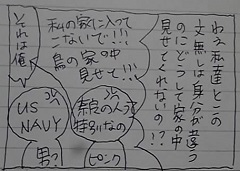 ねえ私達とこの
文無しは身分が違う
のにどうして家の中
見せてくれないの!?
私の家に入って
こないで!!!
鳥の家の中
見せて!!!
それは俺
奈良の人って
特別なの
ピンク
US
NAVY
男?